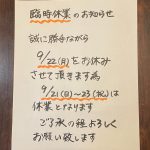 臨時休業のお知らせ
誠に勝手ながら
9/22(月)をお休み
させて頂きます為
9/21(日)～23(祝)は
休業となります
ご了承の程よろしく
お願い致します